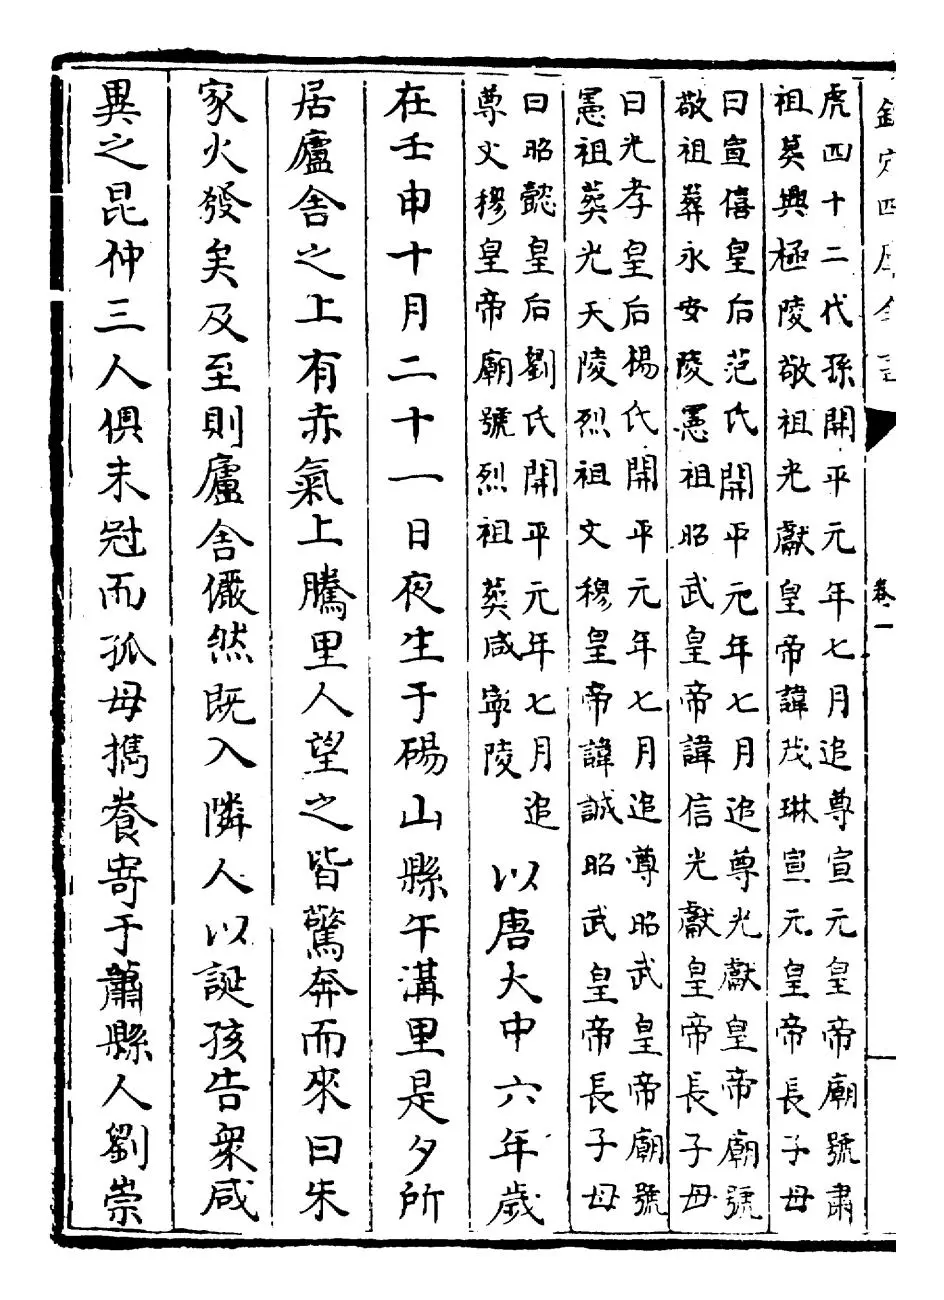 欽定四庫全書
卷一
虎四十二代孫開平元年七月追尊宣元皇帝廟號肅
祖葬興極陵敬祖光獻皇帝諱茂琳宣元皇帝長子母
曰宣僖皇后范氏開平元年七月追尊光獻皇帝廟號
敬祖葬永安陵憲祖昭武皇帝諱信光獻皇帝長子母
曰光孝皇后楊氏開平元年七月追尊昭武皇帝廟號
憲祖葬光天陵烈祖文穆皇帝諱誠昭武皇帝長子母
曰昭懿皇后劉氏開平元年七月追
尊文穆皇帝廟號烈祖葬咸寧陵
以唐大中六年歲
在壬申十月二十一日夜生于碭山縣午溝里是夕所
居廬舍之上有赤氣上騰里人望之皆驚奔而來曰朱
家火發矣及至則廬舍儼然既入隣人以誕孩告衆咸
異之昆仲三人俱未冠而孤母攜養寄于蕭縣人劉崇